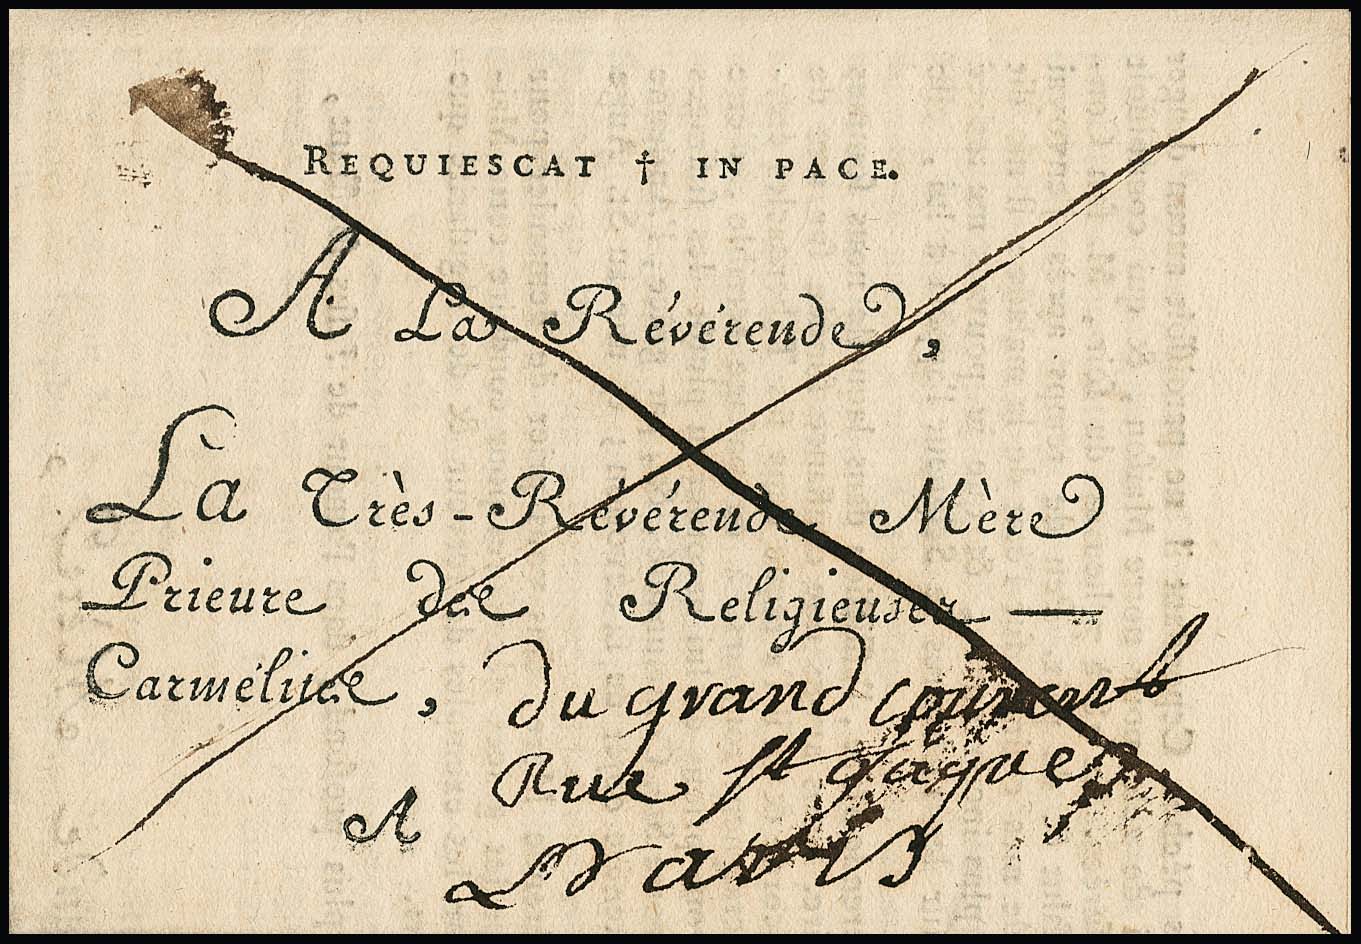 REQUIESCAT † IN PACE.
A La Révérende,
La Très-Révérende Mère
Prieure des Religieuses —
Carmélites, du grand couvent
Rue st jaques
A Paris